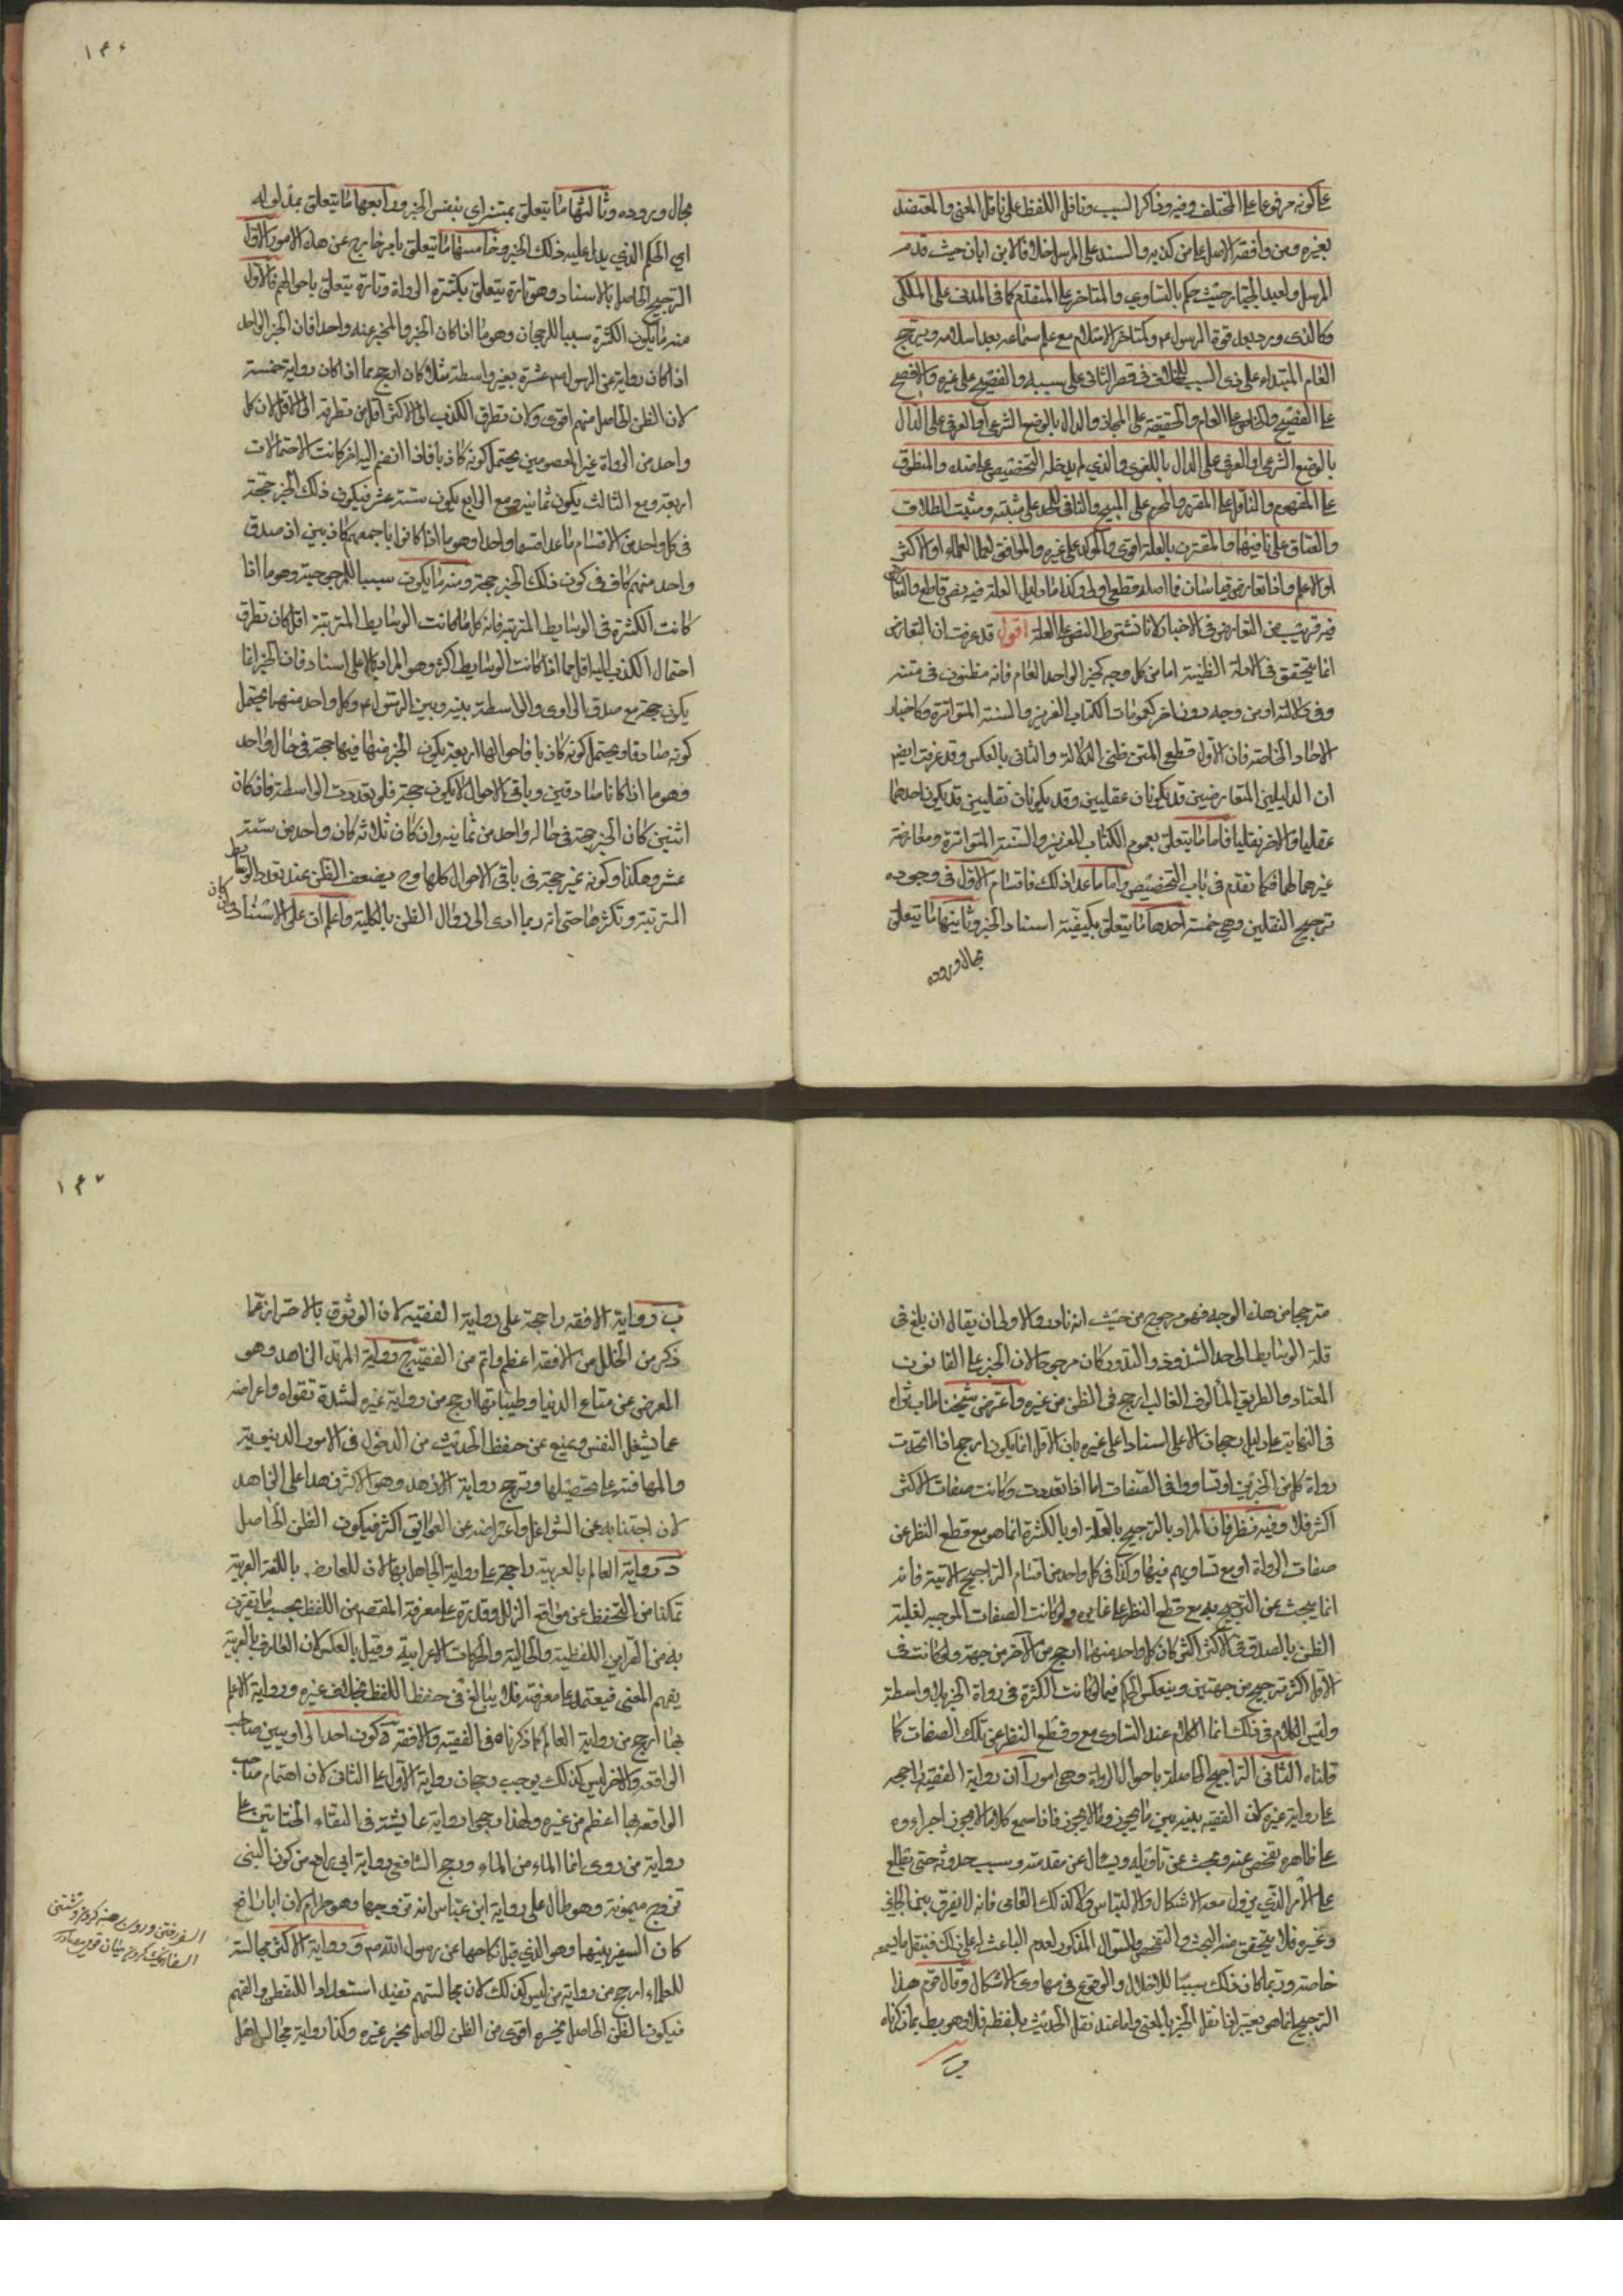 على كونه مرفوعا على المختلف وفيه وذاكر السبب وناقل اللفظ على ناقل المعنى والمعتضد
بغيره ومن وافقه الاصل على من كذبه والمسند على المرسل خلافا لابن ابان حيث قدم
المرسل ولعبد الجبار حيث حكم بالتساوي والمتاخر على المتقدم كما في المدنى على المكى
وكالذى ورد بعد قوة الرسول ع وكمتاخر الاسلام مع علم سماعه بعد اسلامه ويرجح
العام المبتداء على ذى السبب للخلاف في قصر الثانى على سببه والفصيح على غيره والافصح
على الفصيح والخاص على العام والحقيقة على المجاز والدال بالوضع الشرعى او العرفى على الدال
بالوضع الشرعى او العرفى على الدال باللغوى والذي لم يدخله التخصيص على ضده والمنطوق
على المفهوم والناقل على المقرر والمحرم على المبيح والنافى للحد على مثبته ومثبت الطلاق
والعتاق على نافيهما والمقترن بالعلة اقوى والمؤكد على غيره والموافق لعمل العلماء او الاكثر
او الاعلم واذا تعارض قياسان فما اصله قطعى اولى وكذا ما دليل العلة فيه نص قاطع والتعارض
فيه قريب من التعارض في الاخبار لانا نشترط النص على العلة اقول قد عرفت ان التعارض
انما يتحقق في الادلة الظنية اما من كل وجه كخبر الواحد العام فانه مظنون في متنه
وفى دلالته او من وجه دون اخر كعمومات الكتاب العزيز والسنة المتواترة وكاخبار
الاحاد الخاصة فان الاول قطعى المتن ظنى الدلالة والثانى بالعكس وقد عرفت ايضا
ان الدليلين المتعارضين قد يكونان عقليين وقد يكونان نقليين وقد يكون احدهما
عقليا والاخر نقليا فاما ما يتعلق بعموم الكتاب العزيز والسنة المتواترة ومعارضة
غيرهما لهما فكما تقدم في باب التخصيص واما ما عدا ذلك فاقسام الاول في وجوه
ترجيح النقلين وهي خمسة احدها ما يتعلق بكيفية اسناد الخبر وثانيها ما يتعلق
بحال وروده
١٣٦
بحال وروده وثالثها ما يتعلق بمتنه اي بنفس الخبر ورابعها ما يتعلق بمدلوله
اي الحكم الذي يدل عليه ذلك الخبر وخامسها ما يتعلق بامر خارج عن هذه الامور الاول
الترجيح الحاصل بالاسناد وهو تارة يتعلق بكثرة الرواة وتارة يتعلق باحوالهم فالاول
منه ما يكون الكثرة سببا للرجحان وهو ما اذا كان الخبر والمخبر عنه واحدا فان الخبر الواحد
اذا كان رواية عن الرسول ص عشرة بغير واسطة مثلا كان ارجح مما اذا كان رواية خمسة
لان الظن الحاصل منهم اقوى ولان تطرق الكذب الى الاكثر اقل من تطرقه الى الاقل لان كل
واحد من الرواة غير المعصومين يحتمل كونه كاذبا فاذا انضم اليه اخر كانت الاحتمالات
اربعة ومع الثالث يكون ثمانية ومع الرابع يكون ستة عشر فيكون ذلك الخبر حجة
في كل واحد من الاقسام ما عدا قسما واحدا وهو ما اذا كانوا باجمعهم كاذبين اذ صدق
واحد منهم كاف في كون ذلك الخبر حجة ومنه ما يكون سببا للمرجوحية وهو ما اذا
كانت الكثرة في الوسايط المترتبة فانه كلما كانت الوسايط المترتبة اقل كان تطرق
احتمال الكذب اليه اقل مما اذا كانت الوسايط اكثر وهو المراد بالاعلى اسنادا فان الخبر انما
يكون حجة مع صدق الراوى والواسطة بينه وبين الرسول ع وكل واحد منهما يحتمل
كونه صادقا ويحتمل كونه كاذبا فاحوالها اربعة يكون الخبر منها فيها حجة في حال واحد
وهو ما اذا كانا صادقين وباقى الاحوال لا يكون حجة فلو تعددت الواسطة فان كان
اثنين كان الخبر حجة في حالة واحد من ثمانية وان كان ثلاثة كان واحد من ستة
عشر وهكذا وكونه غير حجة في باقى الاحوال كلها وح يضعف الظن عند تعدد الوسايط
المترتبة وتكثرها حتى انه ربما ادى الى زوال الظن بالكلية واعلم ان على الاسناد وان كان
مترجحا من هذا الوجه فهو مرجوح من حيث انه نادر والاولى ان يقال ان بلغ في
قلة الوسايط الى حد الشذوذ والندور كان مرجوحا لان الخبر على القانون
المعتاد والطريق المألوف الغالب ارجح في الظن من غيره واعترض شيخنا طاب ثراه
في النهاية على دليل رجحان الاعلى اسنادا على غيره بان الاول انما يكون ارجح اذا اتحدت
رواة كل من الخبرين او تساووا في الصفات اما اذا تعددت وكانت صفات الاكثر
اكثر فلا وفيه نظر فان المراد بالترجيح بالعلة او بالكثرة انما هو مع قطع النظر عن
صفات الرواة او مع تساويهم فيها وكذا في كل واحد من اقسام التراجيح الاتية فانه
انما يبحث عن الترجيح به مع قطع النظر عما غايره ولو كانت الصفات الموجبة لغلبة
الظن بالصدق في الاكثر اكثر كان كل واحد منهما ارجح من الآخر من جهة ولو كانت في
الاقل اكثر ترجح من جهتين وينعكس الحكم فيما لو كانت الكثرة في رواة الخبر بلا واسطة
وليس الكلام في ذلك انما الكلام عند التساوى مع وقطع النظر عن تلك الصفات كما
قلناه الثانى التراجيح الحاصلة باحوال الرواة وهي امور آ ان رواية الفقيه راجحه
على رواية غيره لان الفقيه يميز بين ما يجوز وما لا يجوز فاذا سمع كلاما لا يجوز اجراءه
على ظاهره تفحص عنه وبحث عن تاويله ويسال عن مقدمته وسبب حدوثه حتى يطلع
على الأمر الذي يزول معه الاشكال والالتباس ولا كذلك العامى فانه لا يفرق بين الجايز
وغيره فلا يتحقق منه البحث والتفحص والسؤال المذكور لعدم الباعث له على ذلك فينقل ما سمعه
خاصة وربما كان ذلك سببا للاخلال والوقوع في مهاوى الاشكال وقال قوم هذا
الترجيح انما هو يعتبر اذا نقل الخبر بالمعنى واما عند نقل الحديث بلفظه فلا وهو بط بما ذكرناه
ب
١٣٧
ب رواية الافقه راجحة على رواية الفقيه لان الوثوق بالاحتراز عما
ذكر من الخلل من الافقه اعظم واتم من الفقيه ج رواية المرتد الزاهد وهو
المعرض عن متاع الدنيا وطيباتها ارجح من رواية غيره لشدة تقواه واعراضه
عما يشغل النفس ويمنع عن حفظ الحديث من الدخول في الامور الدنيوية
والمهافتة على تحصيلها وترجح رواية الازهد وهو الاكثر زهدا على الزاهد
لان اجتنابه عن الشواغل واعتراضه عن العوائق اكثر فيكون الظن الحاصل
د رواية العالم بالعربية راجحة على رواية الجاهل بها لان للعارف باللغة العربية
تمكنا من التحفظ عن مواقع الزلل وقدرة على معرفة المقصد من اللفظ بحسب ما يقترن
به من القراين اللفظية والحالية والحركات الاعرابية وقيل بالعكس لان العارف بالعربية
يفهم المعنى فيعتمد على معرفته فلا يبالغ في حفظ اللفظ بخلاف غيره ورواية الاعلم
بها ارجح من رواية العالم لما ذكرناه في الفقيه والافقه ه كون احد الراويين صاحب
الواقعة والاخر ليس كذلك يوجب رجحان رواية الاول على الثانى لان اهتمام صاحب
الواقعة بها اعظم من غيره ولهذا رجحوا رواية عايشة في التقاء الختانين على
رواية من روى انما الماء من الماء ورجح الشافعى رواية ابى رافع من كون النبى
تزوج ميمونة وهو حلال على رواية ابن عباس انه تزوجها وهو حرام لان ابا رافع
كان السفير بينهما وهو الذي قبل نكاحها عن رسول الله ص و رواية الاكثر مجالسة
للعلماء ارجح من رواية من ليس كذلك لان مجالستهم تفيد استعدادا للتفطن والفهم
فيكون الظن الحاصل بخبره اقوى من الظن الحاصل بخبر غيره وكذا رواية مجالس اهل